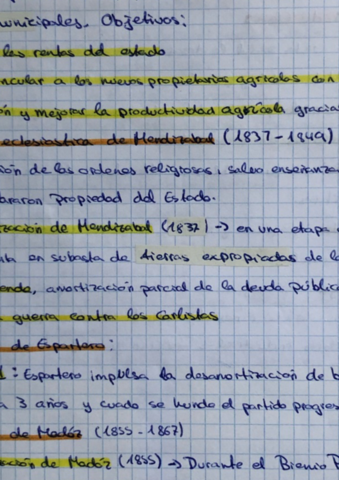 unicipales. Objetivos:
las rentas del estado
ncular a los nuevos propietarios agrícolas con
ón y mejorar la productividad agrícola gracias
eclesiastica de Mendizabal (1837-1849)
ión de las ordenes religiosas, salvo enseñanza
araron propiedad del Estado.
ización de Mendizabal (1837) → en una etapa
ta en subasta de tierras expropiadas de l
enda, amortización parcial de la deuda públic
guerra contra los Carlistas
de Espartero:
1: Espartero impulsa la desamortización de b
a 3 años y cuado se hunde el partido progres
de Madoz (1855-1867)
ación de Madoz (1855) → Durante el Bienio P